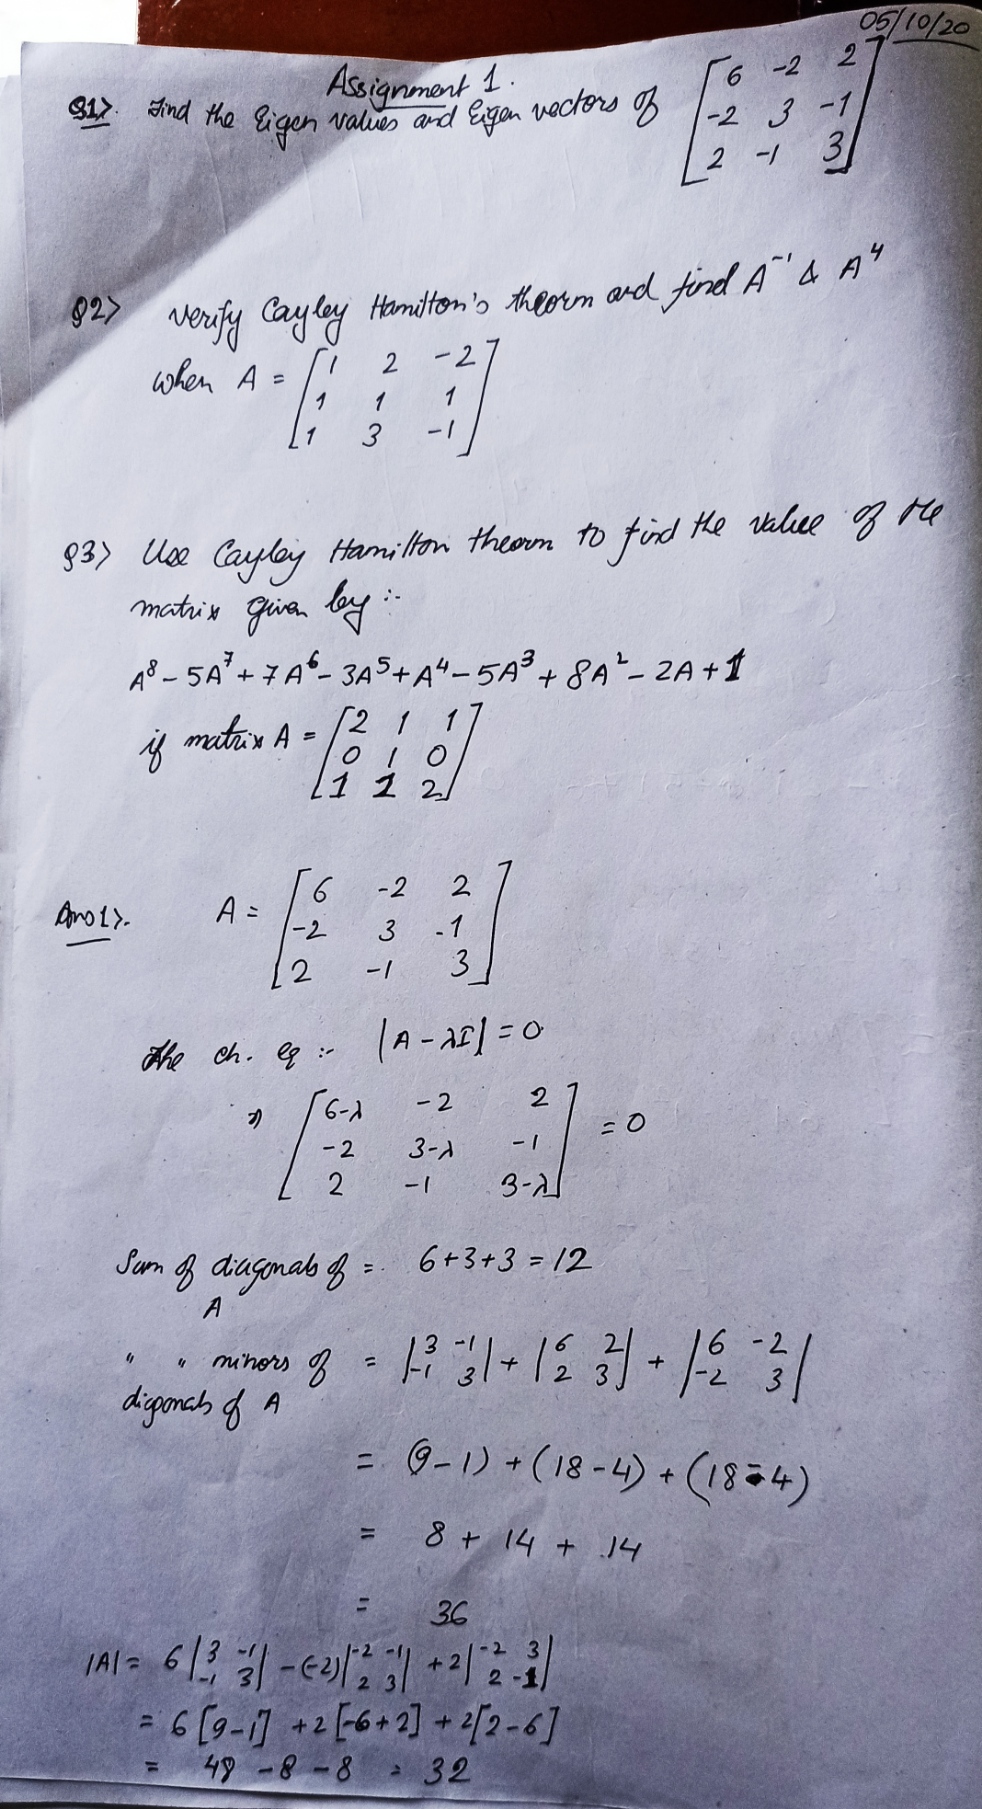 05/10/20
Assignment 1.
Q1>. Find the Eigen values and Eigen vectors of [6 -2 2
-2 3 -1
2 -1 3]
Q2> verify Cayley Hamilton's theorm and find A⁻¹ & A⁴
when A = [1 2 -2
1 1 1
1 3 -1]
Q3> Use Cayley Hamilton theorm to find the value of the
matrix given by :-
A⁸ - 5A⁷ + 7A⁶ - 3A⁵ + A⁴ - 5A³ + 8A² - 2A + 1
if matrix A = [2 1 1
0 1 0
1 1 2]
Ans1>. A = [6 -2 2
-2 3 -1
2 -1 3]
The ch. eq :- |A - λI| = 0
⇒ [6-λ -2 2
-2 3-λ -1
2 -1 3-λ] = 0
Sum of diagonals of = 6+3+3 = 12
A
" " minors of = |3 -1
-1 3| + |6 2
2 3| + |6 -2
-2 3|
digonals of A
= (9-1) + (18-4) + (18-4)
= 8 + 14 + 14
= 36
|A| = 6|3 -1
-1 3| - (-2)|-2 -1
2 3| + 2|-2 3
2 -1|
= 6[9-1] + 2[-6+2] + 2[2-6]
= 48 - 8 - 8 = 32